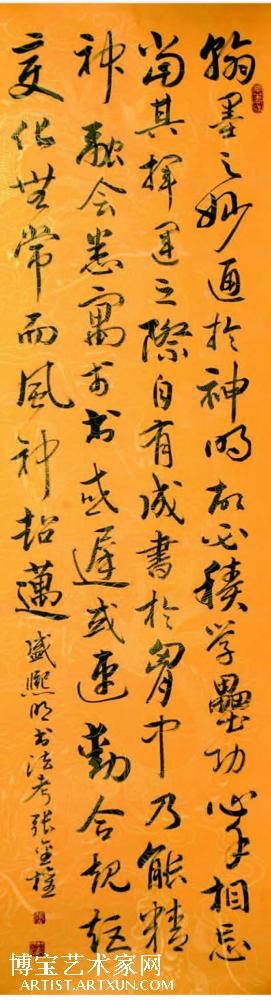 翰墨之妙通於神明故必積学壘功心手相忘
當其揮運之際自有成書於胷中乃能精
神融会悉寓於書或遲或速動合規矩
变化無常而風神超邁
盛熙明书法考張金桂
博宝艺术家网
ARTIST.ARTXUN.COM